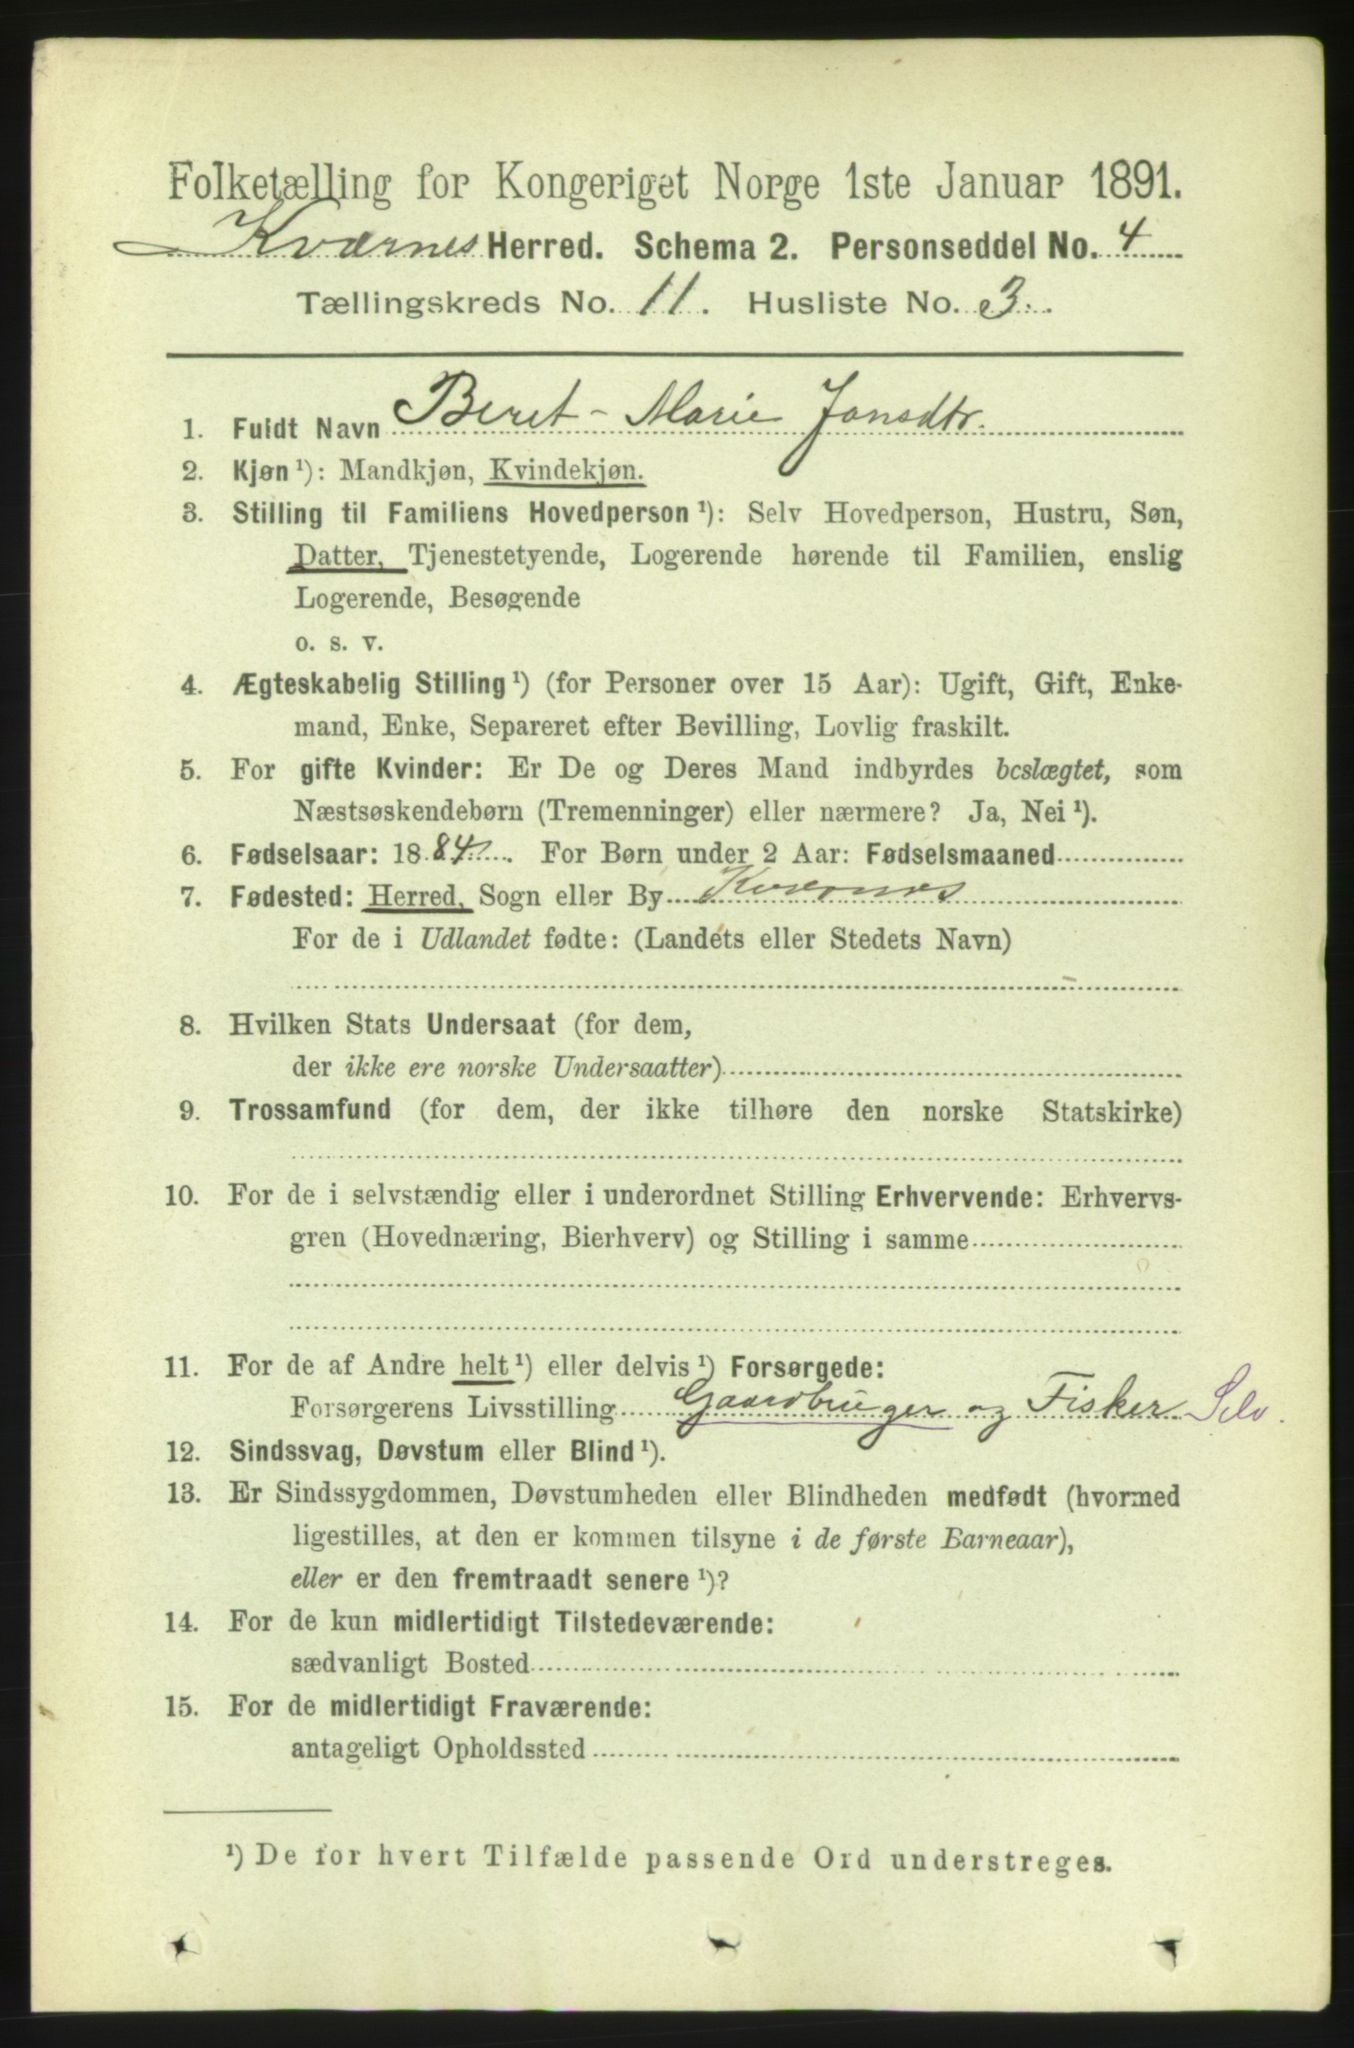 Folketælling for Kongeriget Norge 1ste Januar 1891.
Kværnes Herred. Schema 2. Personseddel No. 4
Tællingskreds No. 11. Husliste No. 3.
1. Fuldt Navn Beret-Marie Jonsdtr.
2. Kjøn ¹): Mandkjøn, Kvindekjøn.
3. Stilling til Familiens Hovedperson ¹): Selv Hovedperson, Hustru, Søn,
Datter, Tjenestetyende, Logerende hørende til Familien, enslig
Logerende, Besøgende
o. s. v.
4. Ægteskabelig Stilling ¹) (for Personer over 15 Aar): Ugift, Gift, Enke-
mand, Enke, Separeret efter Bevilling, Lovlig fraskilt.
5. For gifte Kvinder: Er De og Deres Mand indbyrdes beslægtet, som
Næstsøskendebørn (Tremenninger) eller nærmere? Ja, Nei ¹).
6. Fødselsaar: 1884. For Børn under 2 Aar: Fødselsmaaned
7. Fødested: Herred, Sogn eller By Kværnes
For de i Udlandet fødte: (Landets eller Stedets Navn)
8. Hvilken Stats Undersaat (for dem,
der ikke ere norske Undersaatter)
9. Trossamfund (for dem, der ikke tilhøre den norske Statskirke)
10. For de i selvstændig eller i underordnet Stilling Erhvervende: Erhvervs-
gren (Hovednæring, Bierhverv) og Stilling i samme
11. For de af Andre helt ¹) eller delvis ¹) Forsørgede:
Forsørgerens Livsstilling Gaardbruger og Fisker Selv.
12. Sindssvag, Døvstum eller Blind ¹).
13. Er Sindssygdommen, Døvstumheden eller Blindheden medfødt (hvormed
ligestilles, at den er kommen tilsyne i de første Barneaar),
eller er den fremtraadt senere ¹)?
14. For de kun midlertidigt Tilstedeværende:
sædvanligt Bosted
15. For de midlertidigt Fraværende:
antageligt Opholdssted
¹) De for hvert Tilfælde passende Ord understreges.